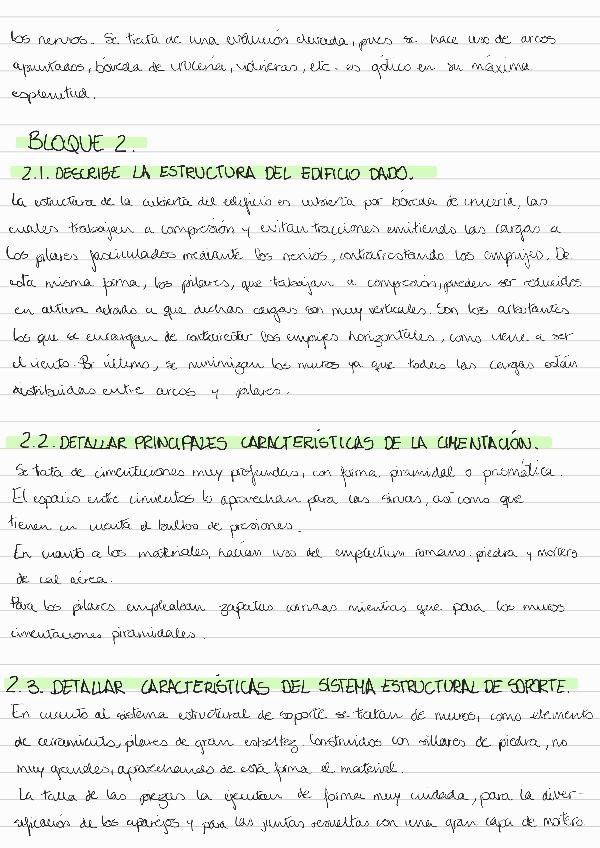 los nervios. Se trata de una evolución elevada, pues se hace uso de arcos
apuntados, bóveda de crucería, vidrieras, etc. es gótico en su máxima
esplenitud.
BLOQUE 2.
2.1. DESCRIBE LA ESTRUCTURA DEL EDIFICIO DADO.
La estructura de la cubierta del edificio es cubierta por bóveda de crucería, las
cuales trabajan a compresión y evitan tracciones emitiendo las cargas a
los pilares fasciculados mediante los nervios, contrarrestando los empujes. De
esta misma forma, los pilares, que trabajan a compresión, pueden ser reducidos
en altura debido a que dichas cargas son muy verticales. Son los arbotantes
los que se encargan de contrarrestar los empujes horizontales, como viene a ser
el viento. Por último, se minimizan los muros ya que todas las cargas están
distribuidas entre arcos y pilares.
2.2. DETALLAR PRINCIPALES CARACTERÍSTICAS DE LA CIMENTACIÓN.
Se trata de cimentaciones muy profundas, con forma piramidal o prismática.
El espacio entre cimientos lo aprovechan para las, así como que
tienen en cuenta el bulbo de presiones.
En cuanto a los materiales, hacían uso del emplectum romano: piedra y mortero
de cal aérea.
Para los pilares empleaban zapatas corridas mientras que para los muros
cimentaciones piramidales.
2.3. DETALLAR CARACTERÍSTICAS DEL SISTEMA ESTRUCTURAL DE SOPORTE.
En cuanto al sistema estructural de soporte se tratan de muros, como elemento
de cerramiento, pilares de gran esbeltez. Construidos con sillares de piedra, no
muy grandes, aprovechando de esta forma el material.
La talla de las piezas la ejecutan de forma muy cuidada, para la diver-
sificación de los aparejos y para las juntas resueltas con una gran capa de mortero